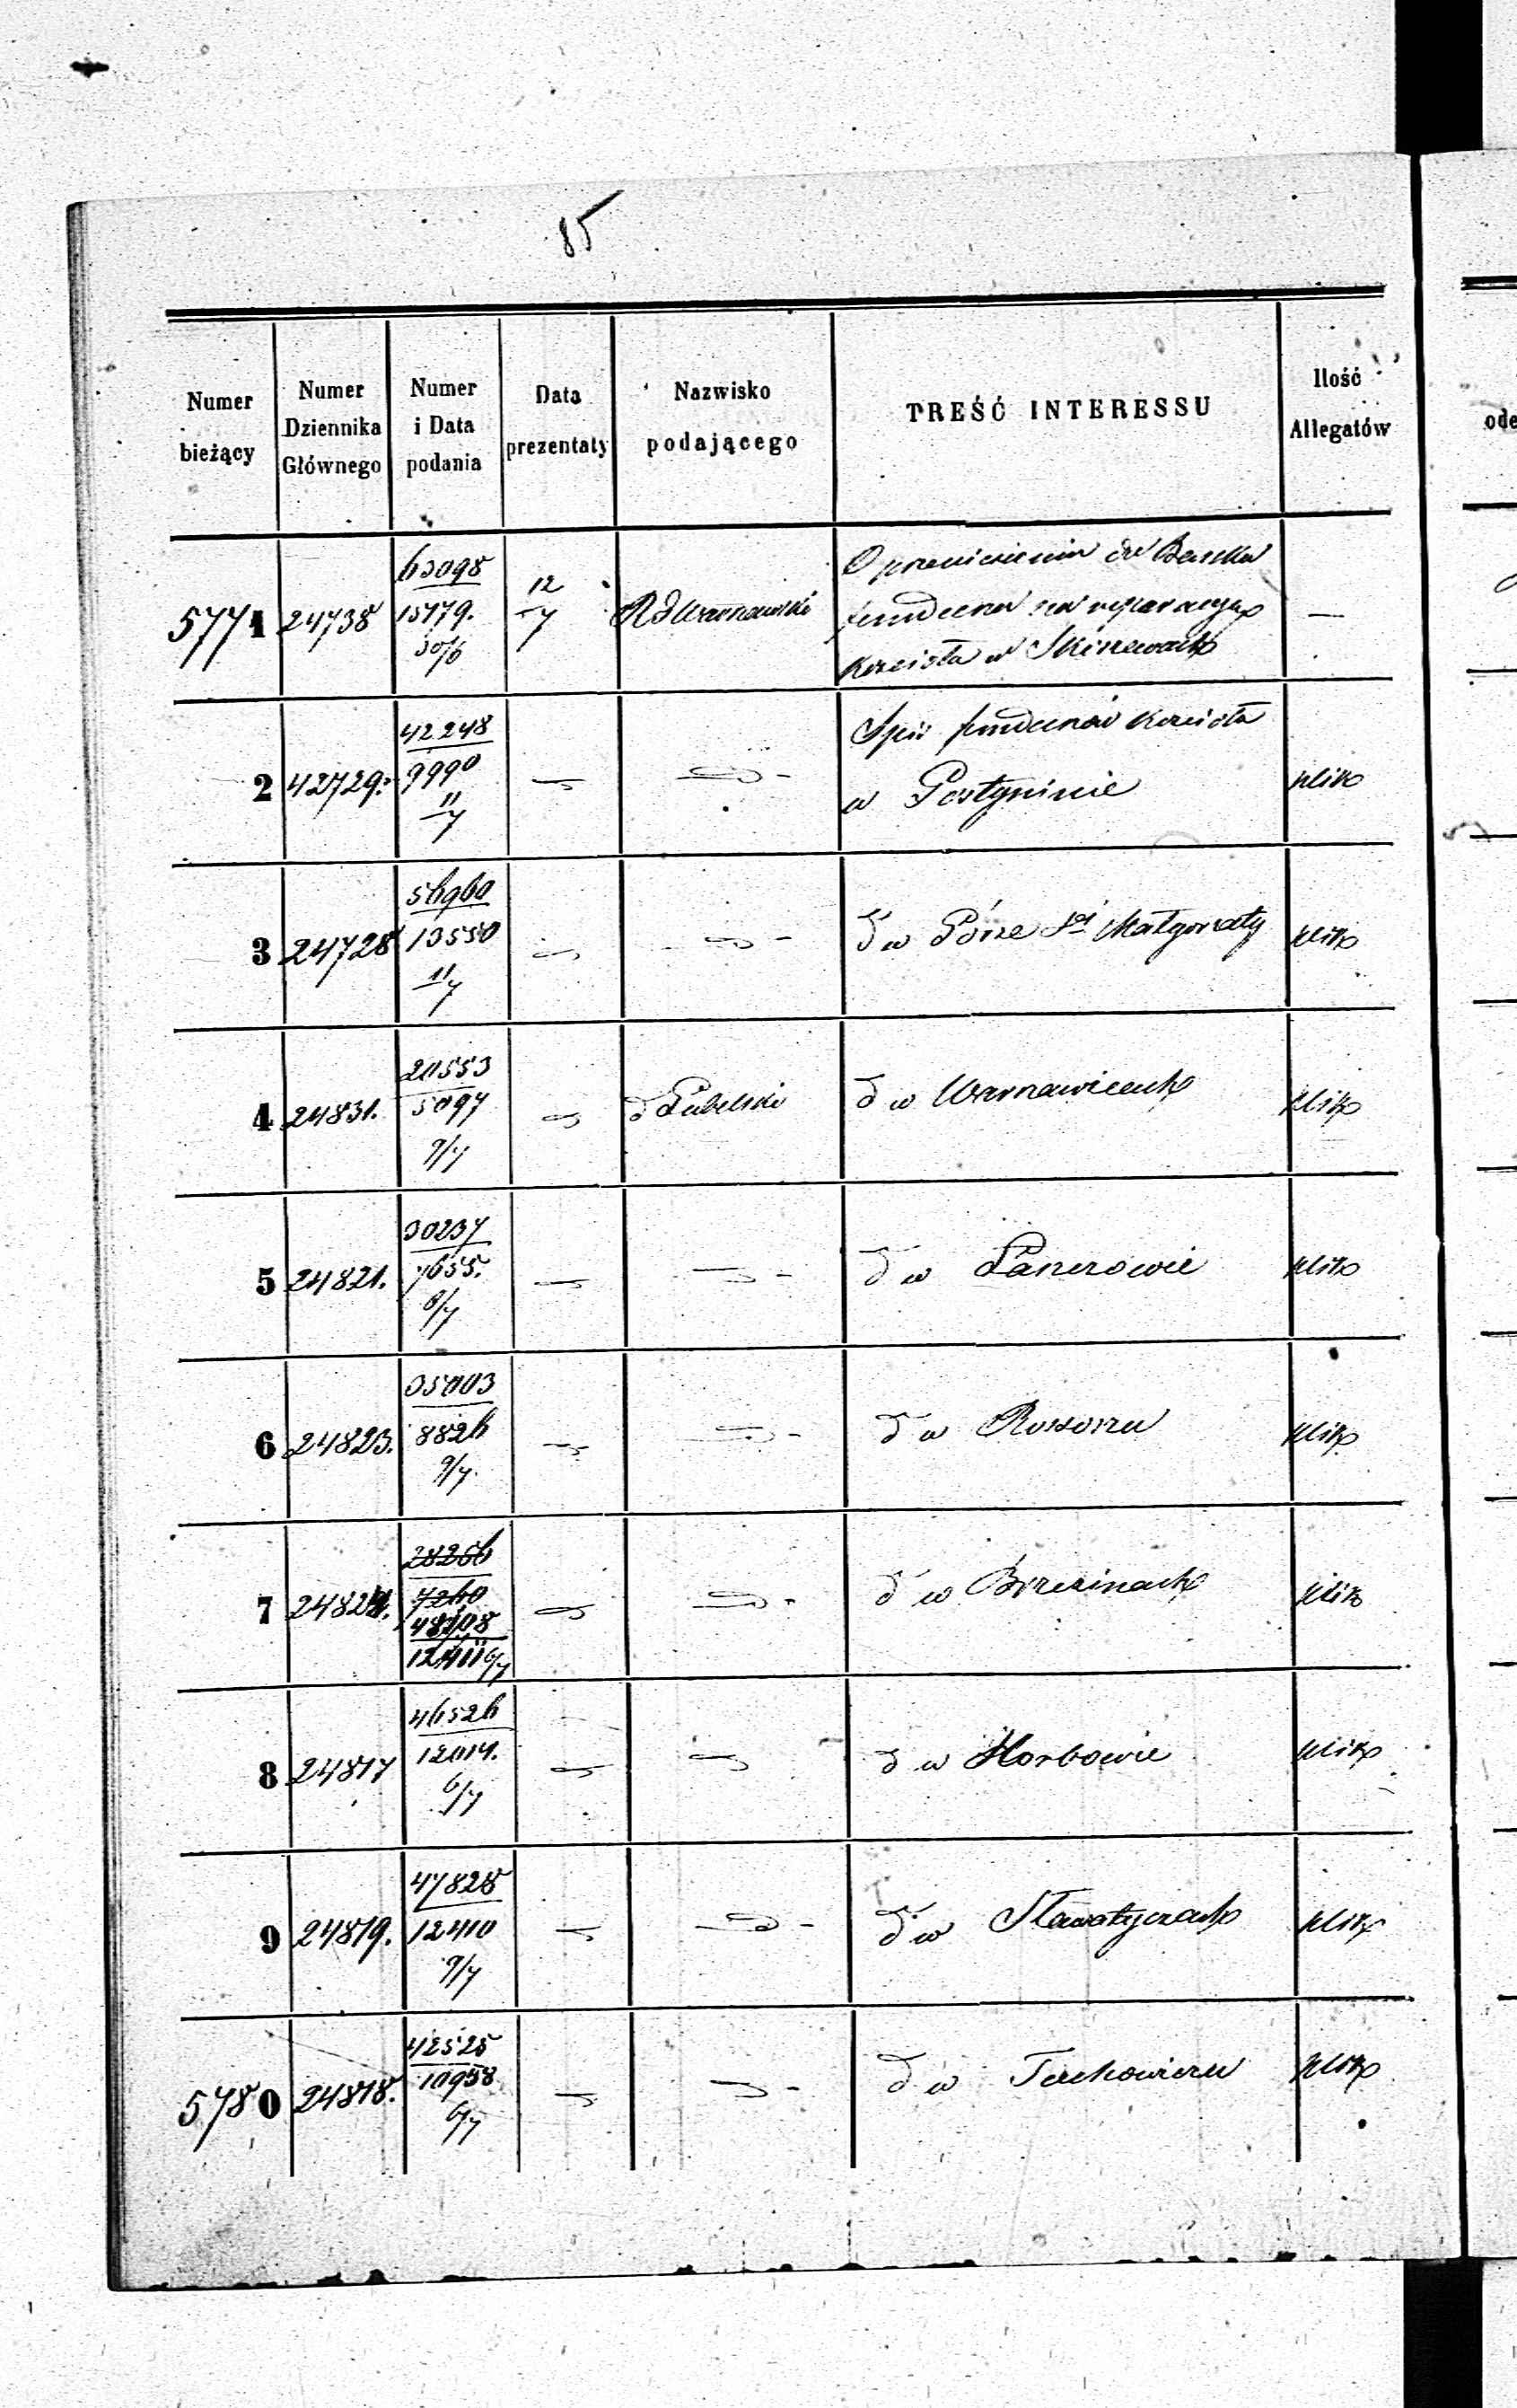 85
Numer bieżący | Numer Dziennika Głównego | Numer i Data podania | Data prezentaty | Nazwisko podającego | TREŚĆ INTERESSU | Ilość Allegatów
ode
5771 | 24738 | 63098 | 12/7 | R d Warszawski | O przeniesieniu do Banku
15779. | funduszu na reparacyą | —
30/6 | Kościoła w Skiszewach
2 | 42729. | 42248 | Spis funduszów Kościoła
9990 | w Gostyninie | plik
11/7
3 | 24728 | 56960
13550 | d w Górze Sej Małgorzaty | plik
11/7
4 | 24831. | 20553
5097 | d Lubelski | d w Warszawicach | plik
9/7
5 | 24821. | 30237
7655. | d w | plik
8/7
6 | 24823. | 35003
8826 | d w Rossoszu | plik
9/7.
7 | 24824. | 28266
7260 | d w Brzezinach | plik
48108
12411 6/7
8 | 24817 | 46526
12014. | d w Horbowie | plik
6/7
9 | 24819. | 47828
12410 | d w Sławatyczach | plik
9/7
5780 | 24818. | 42525
10958 | d w | plik
6/7